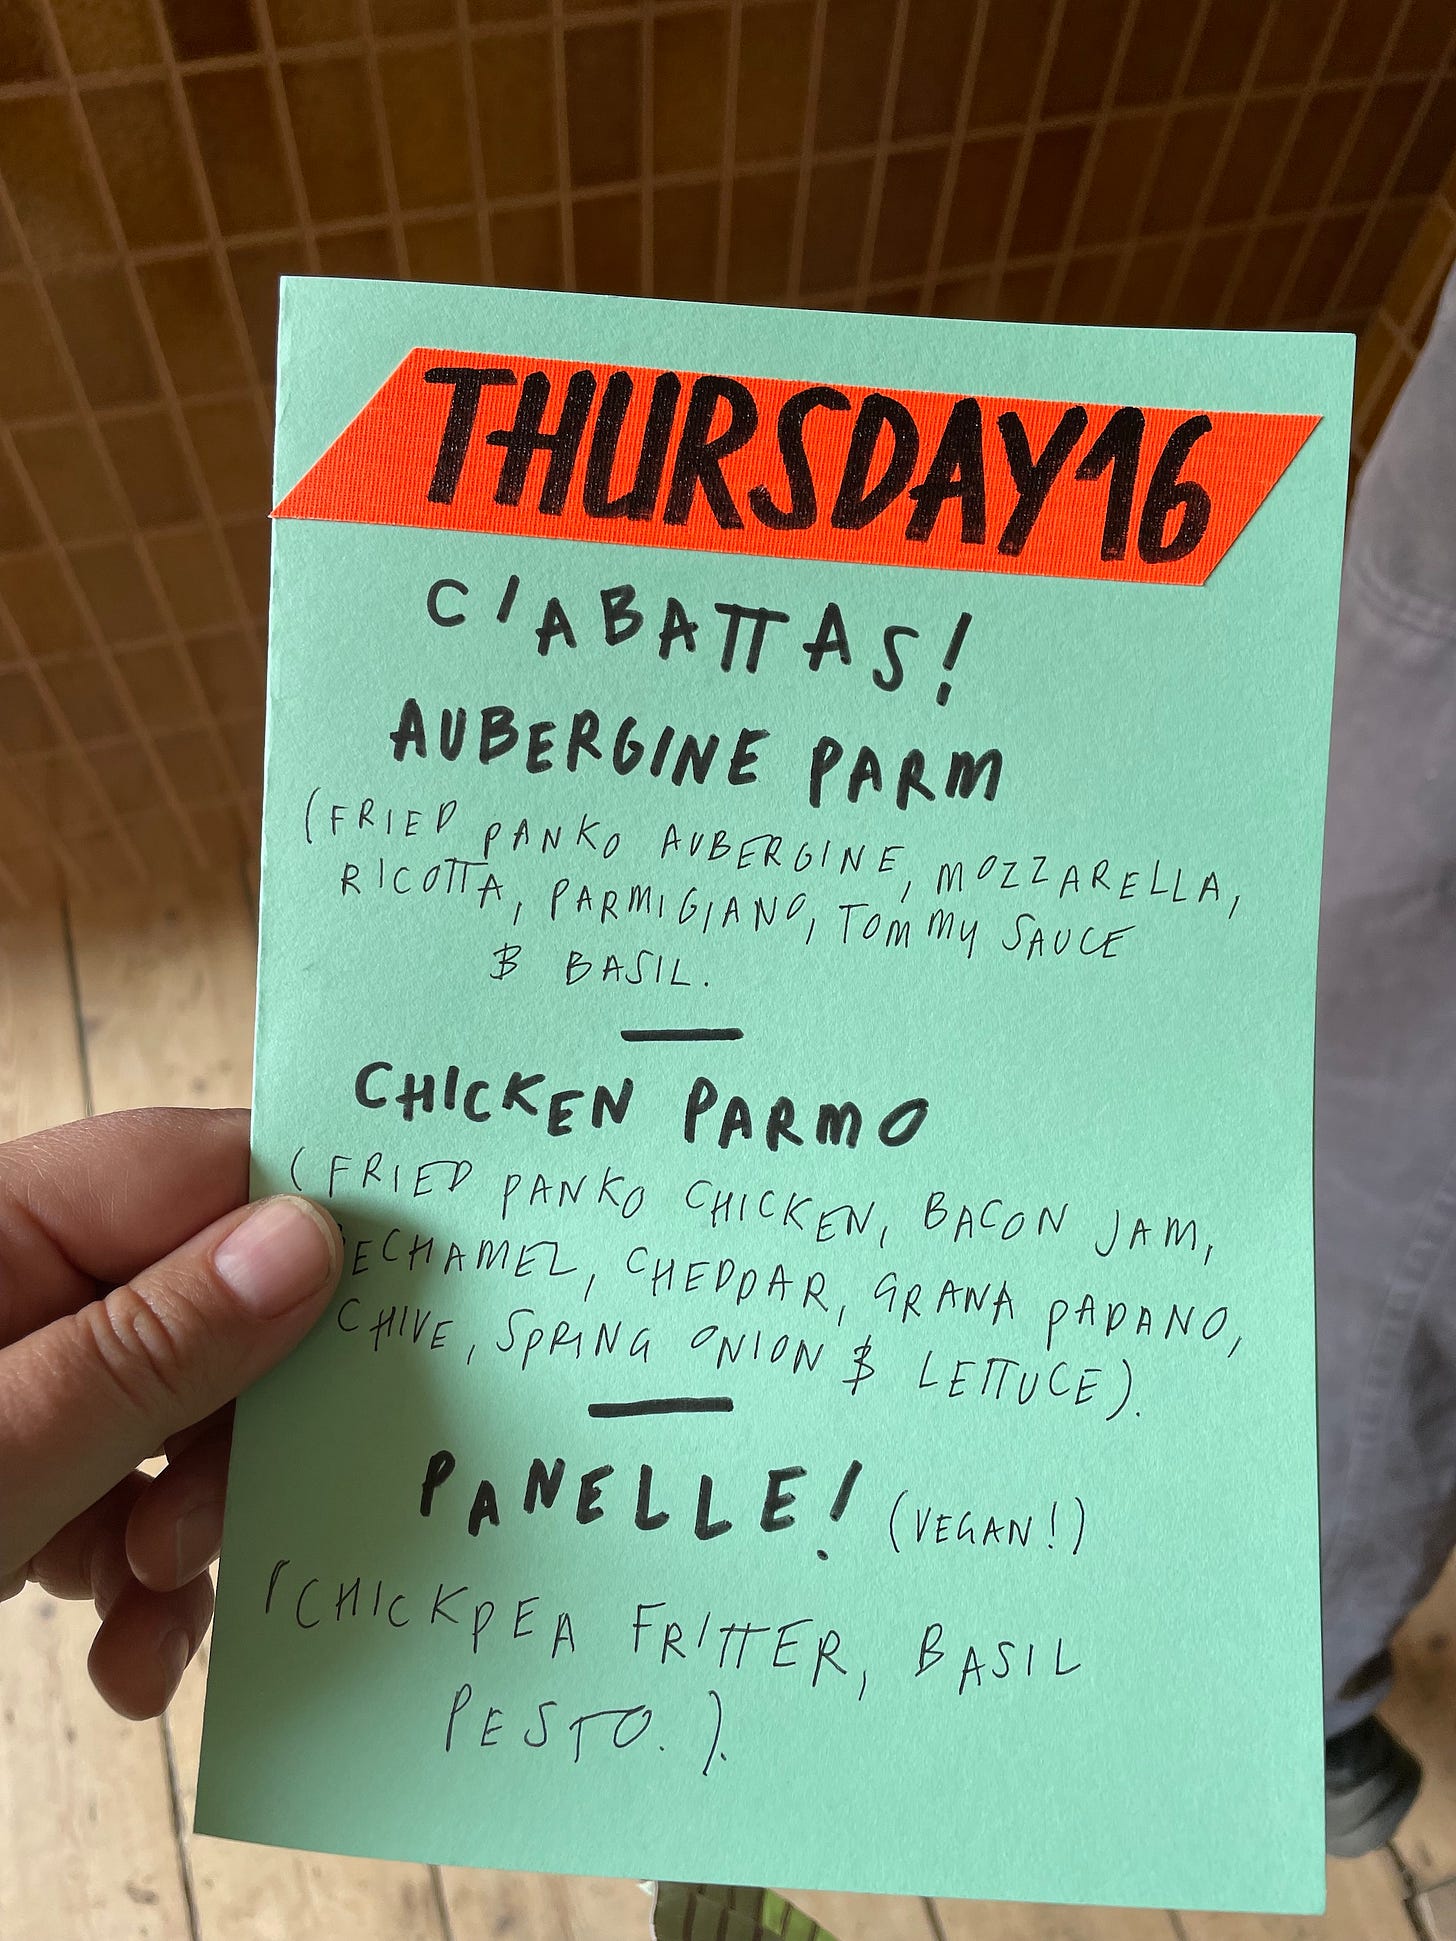 THURSDAY 16
CIABATTAS!
AUBERGINE PARM
(FRIED PANKO AUBERGINE, MOZZARELLA,
RICOTTA, PARMIGIANO, TOMMY SAUCE
& BASIL.
CHICKEN PARMO
(FRIED PANKO CHICKEN, BACON JAM,
BECHAMEL, CHEDDAR, GRANA PADANO,
CHIVE, SPRING ONION & LETTUCE).
PANELLE! (VEGAN!)
(CHICKPEA FRITTER, BASIL
PESTO.).